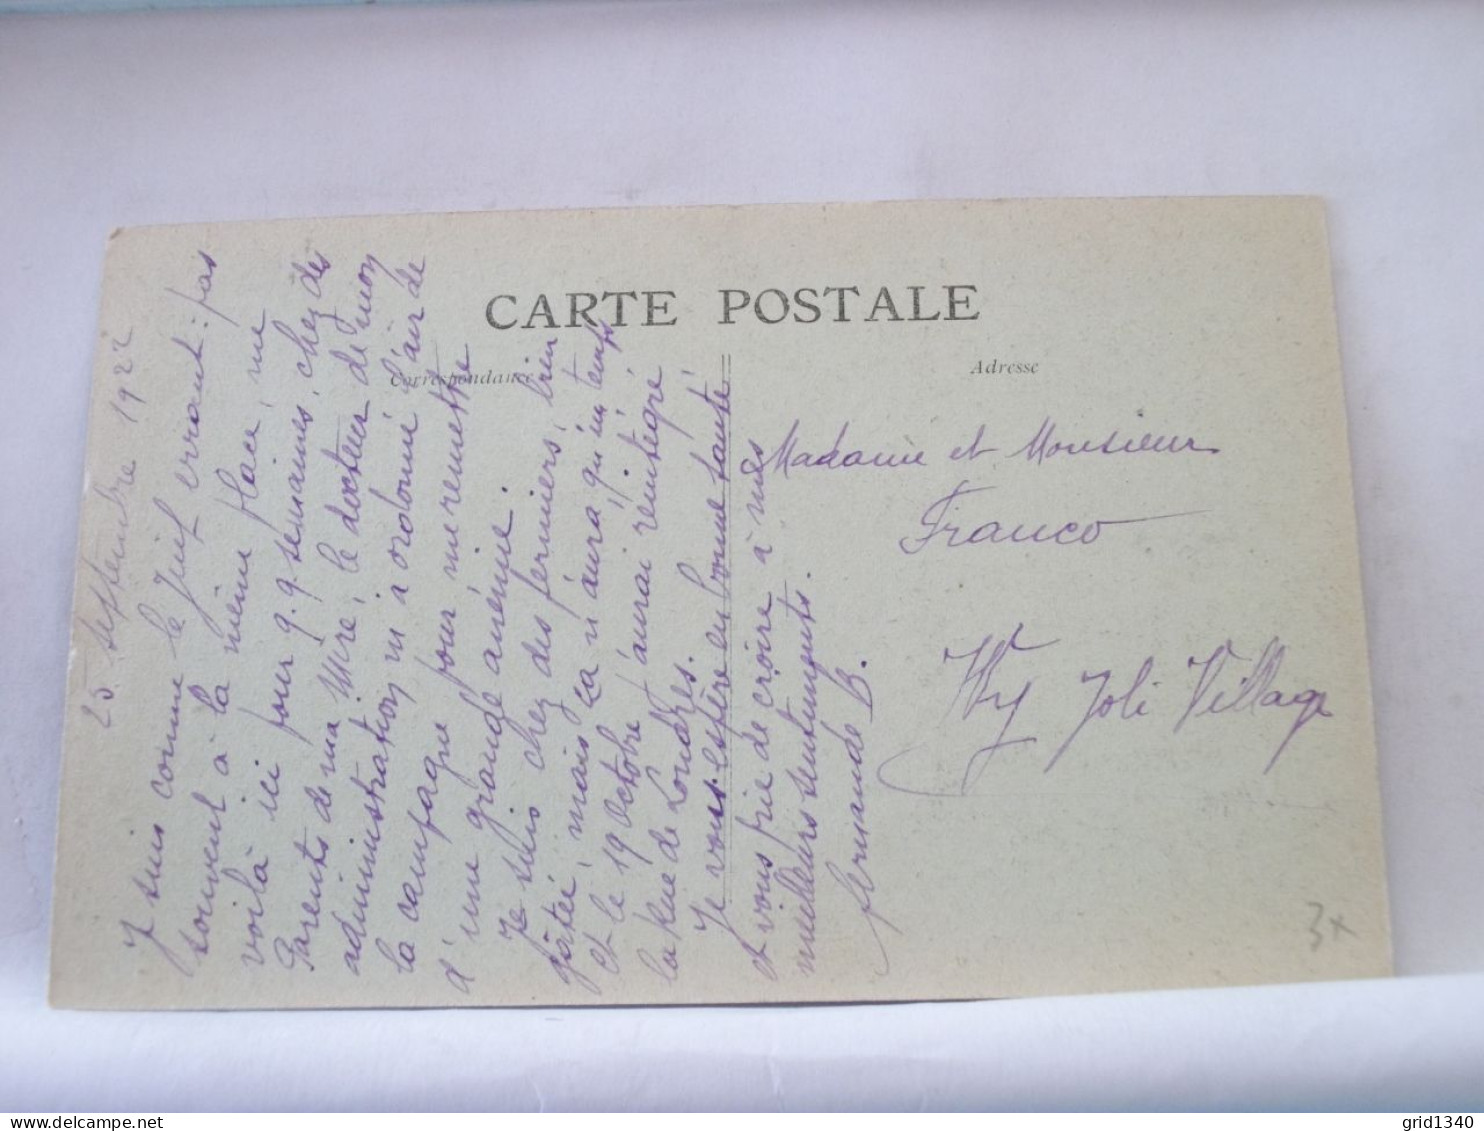 CARTE POSTALE
Correspondance
Adresse
25 septembre 1922
J suis comme le Juif errant : pas
souvent à la même place, me
voilà ici pour q.q. semaines, chez des
Parents de ma Mère, le docteur de mon
administration m'a ordonné l'air de
la campagne pour me remettre
d'une grande anémie.
Je suis chez des fermiers, bien
gâtée, mais ça n'aura qu'un temps
et le 19 Octobre j'aurai réintégré
la Rue de Londres.
Je vous espère en bonne santé
et vous prie de croire à mes
meilleurs sentiments.
Fernande B.
Madame et Monsieur
Franco
Joli Village
3x
grid1340